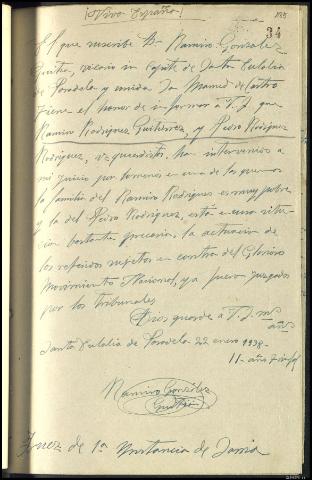 ¡Viva España!
34
El que suscribe Dn Ramiro González
Guitián, vicario in cápite de Santa Eulalia
de Paradela y unida Sn Mamed de Castro
tiene el honor de informar a V.S. que
Ramiro Rodríguez Gutiérrez, y Pedro Rodríguez
Rodríguez, ha intervenido a
mi juicio por lo menos en una de las
la familia del Ramiro Rodríguez es muy pobre
y la del Pedro Rodríguez, está en una situa-
ción bastante precaria, la actuación de
los referidos sujetos en contra del Glorioso
Movimiento Nacional, ya fueron juzgados
por los tribunales
Dios guarde a V.S. ms
años
Santa Eulalia de Paradela 22 enero 1938-
II-año
Ramiro González
Guitián
Juez de 1ª Instancia de Sarria